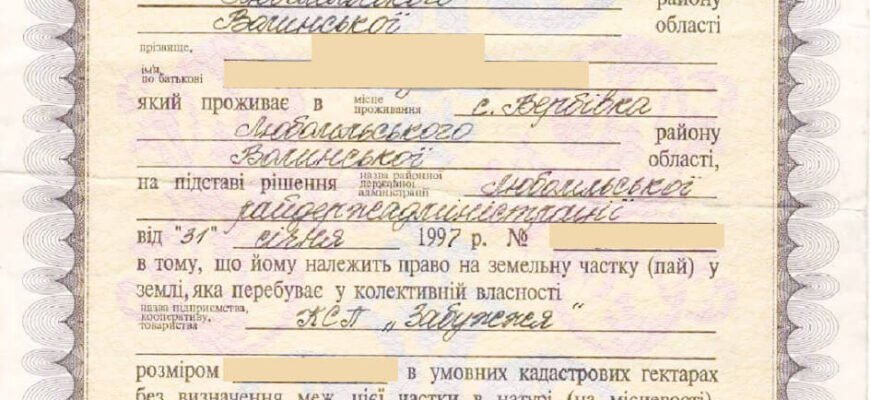 Любомльського району
Волинської області
прізвище,
ім'я,
по батькові
який проживає в місце проживання с. Вербівка
Любомльського району
Волинської області,
на підставі рішення назва районної державної адміністрації Любомльської
райдержадміністрації
від "31" січня 1997 р. №
в тому, що йому належить право на земельну частку (пай) у
землі, яка перебуває у колективній власності
назва підприємства, кооперативу, товариства КСП „Забужжя"
розміром в умовних кадастрових гектарах
без визначення меж цієї частки в натурі (на місцевості).